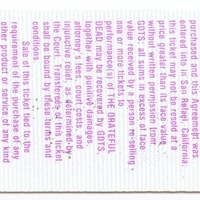 purchaser of this Agreement was
entered into in San Rafael, California
this ticket may not be resold at a
price greater than its face value
without written permission from
GDTS, all sums in excess of face
value received by a person re-selling
one or more tickets to
performance(s) of THE GRATEFUL
DEAD may be recovered by GDTS,
together with punitive damages,
attorney's fees, court costs, and
injunctive relief, as determined by
the Court. Transferees of this ticket
shall be bound by these terms and
conditions.
Sale of this ticket tied to the
requirement of the purchase of any
other product or service of any kind